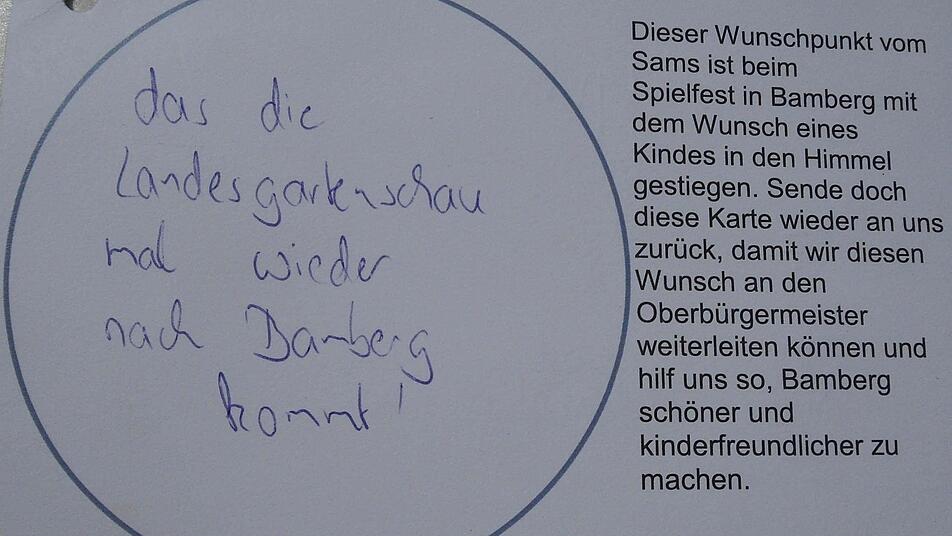 das die
Landesgartenschau
mal wieder
nach Bamberg
kommt!
Dieser Wunschpunkt vom
Sams ist beim
Spielfest in Bamberg mit
dem Wunsch eines
Kindes in den Himmel
gestiegen. Sende doch
diese Karte wieder an uns
zurück, damit wir diesen
Wunsch an den
Oberbürgermeister
weiterleiten können und
hilf uns so, Bamberg
schöner und
kinderfreundlicher zu
machen.